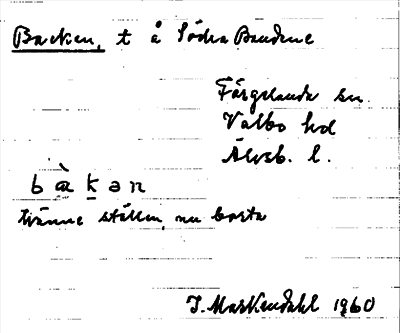 Backen, t å Södra Bandene
Färgelanda sn.
Valbo hd
Älvsb. l.
bàkən
tvänne ställen, nu borta
J. Markendahl 1960